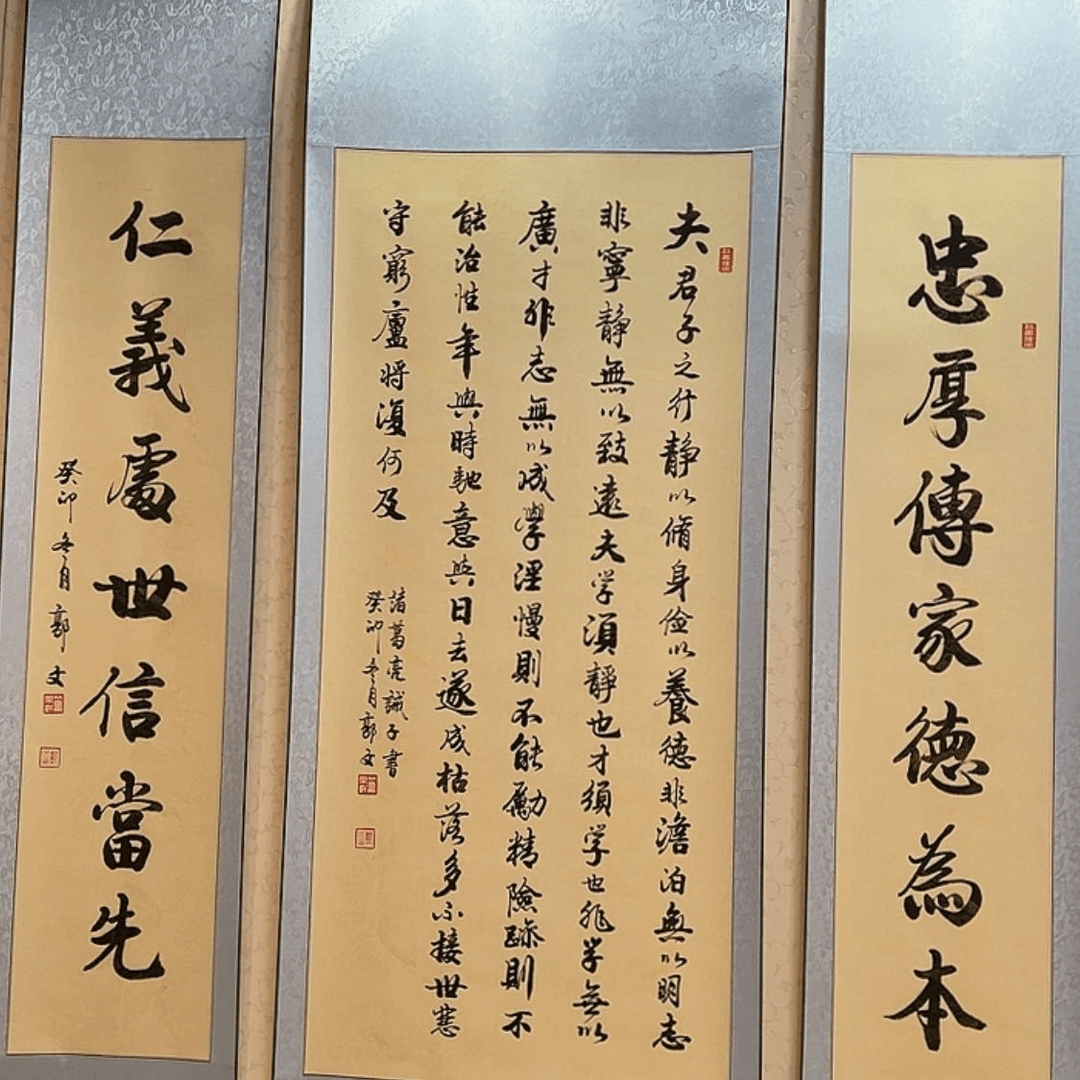 忠厚傳家德為本
夫君子之行静以脩身俭以養德非澹泊無以明志
非寧静無以致遠夫学須靜也才須学也非学無以
廣才非志無以成學淫慢則不能勵精險躁則不
能治性年與時馳意與日去遂成枯落多不接世悲
守窮廬將復何及
諸葛亮誡子書
癸卯冬月郭文
仁義處世信當先
癸卯冬月郭文